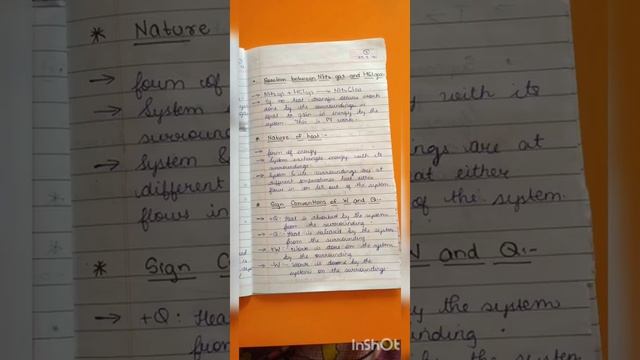 * Reaction between NH3 gas and HCl gas
→ NH3(g) + HCl(g) → NH4Cl(s)
→ If no heat transfer occurs work
done by the surroundings is
equal to gain in energy by the
system. This is PV work.
* Nature of heat :-
→ form of energy
→ System exchanges energy with its
surroundings.
→ System & its surroundings are at
different temperatures heat either
flows in or out of the system.
* Sign Conventions of W and Q:-
→ +Q: Heat is absorbed by the system
from the surrounding.
→ -Q: Heat is released by the system
from the surrounding
→ +W: Work is done on the system
by the surrounding
→ -W: Work is done by the
system on the surroundings
* Nature
→ form of
→ System
surround
→ System &
different
flows in
* Sign C
→ +Q: Hea
from
y with its
ings are at
at either
of the system.
W and Q:-
by the system
unding.
InShOt